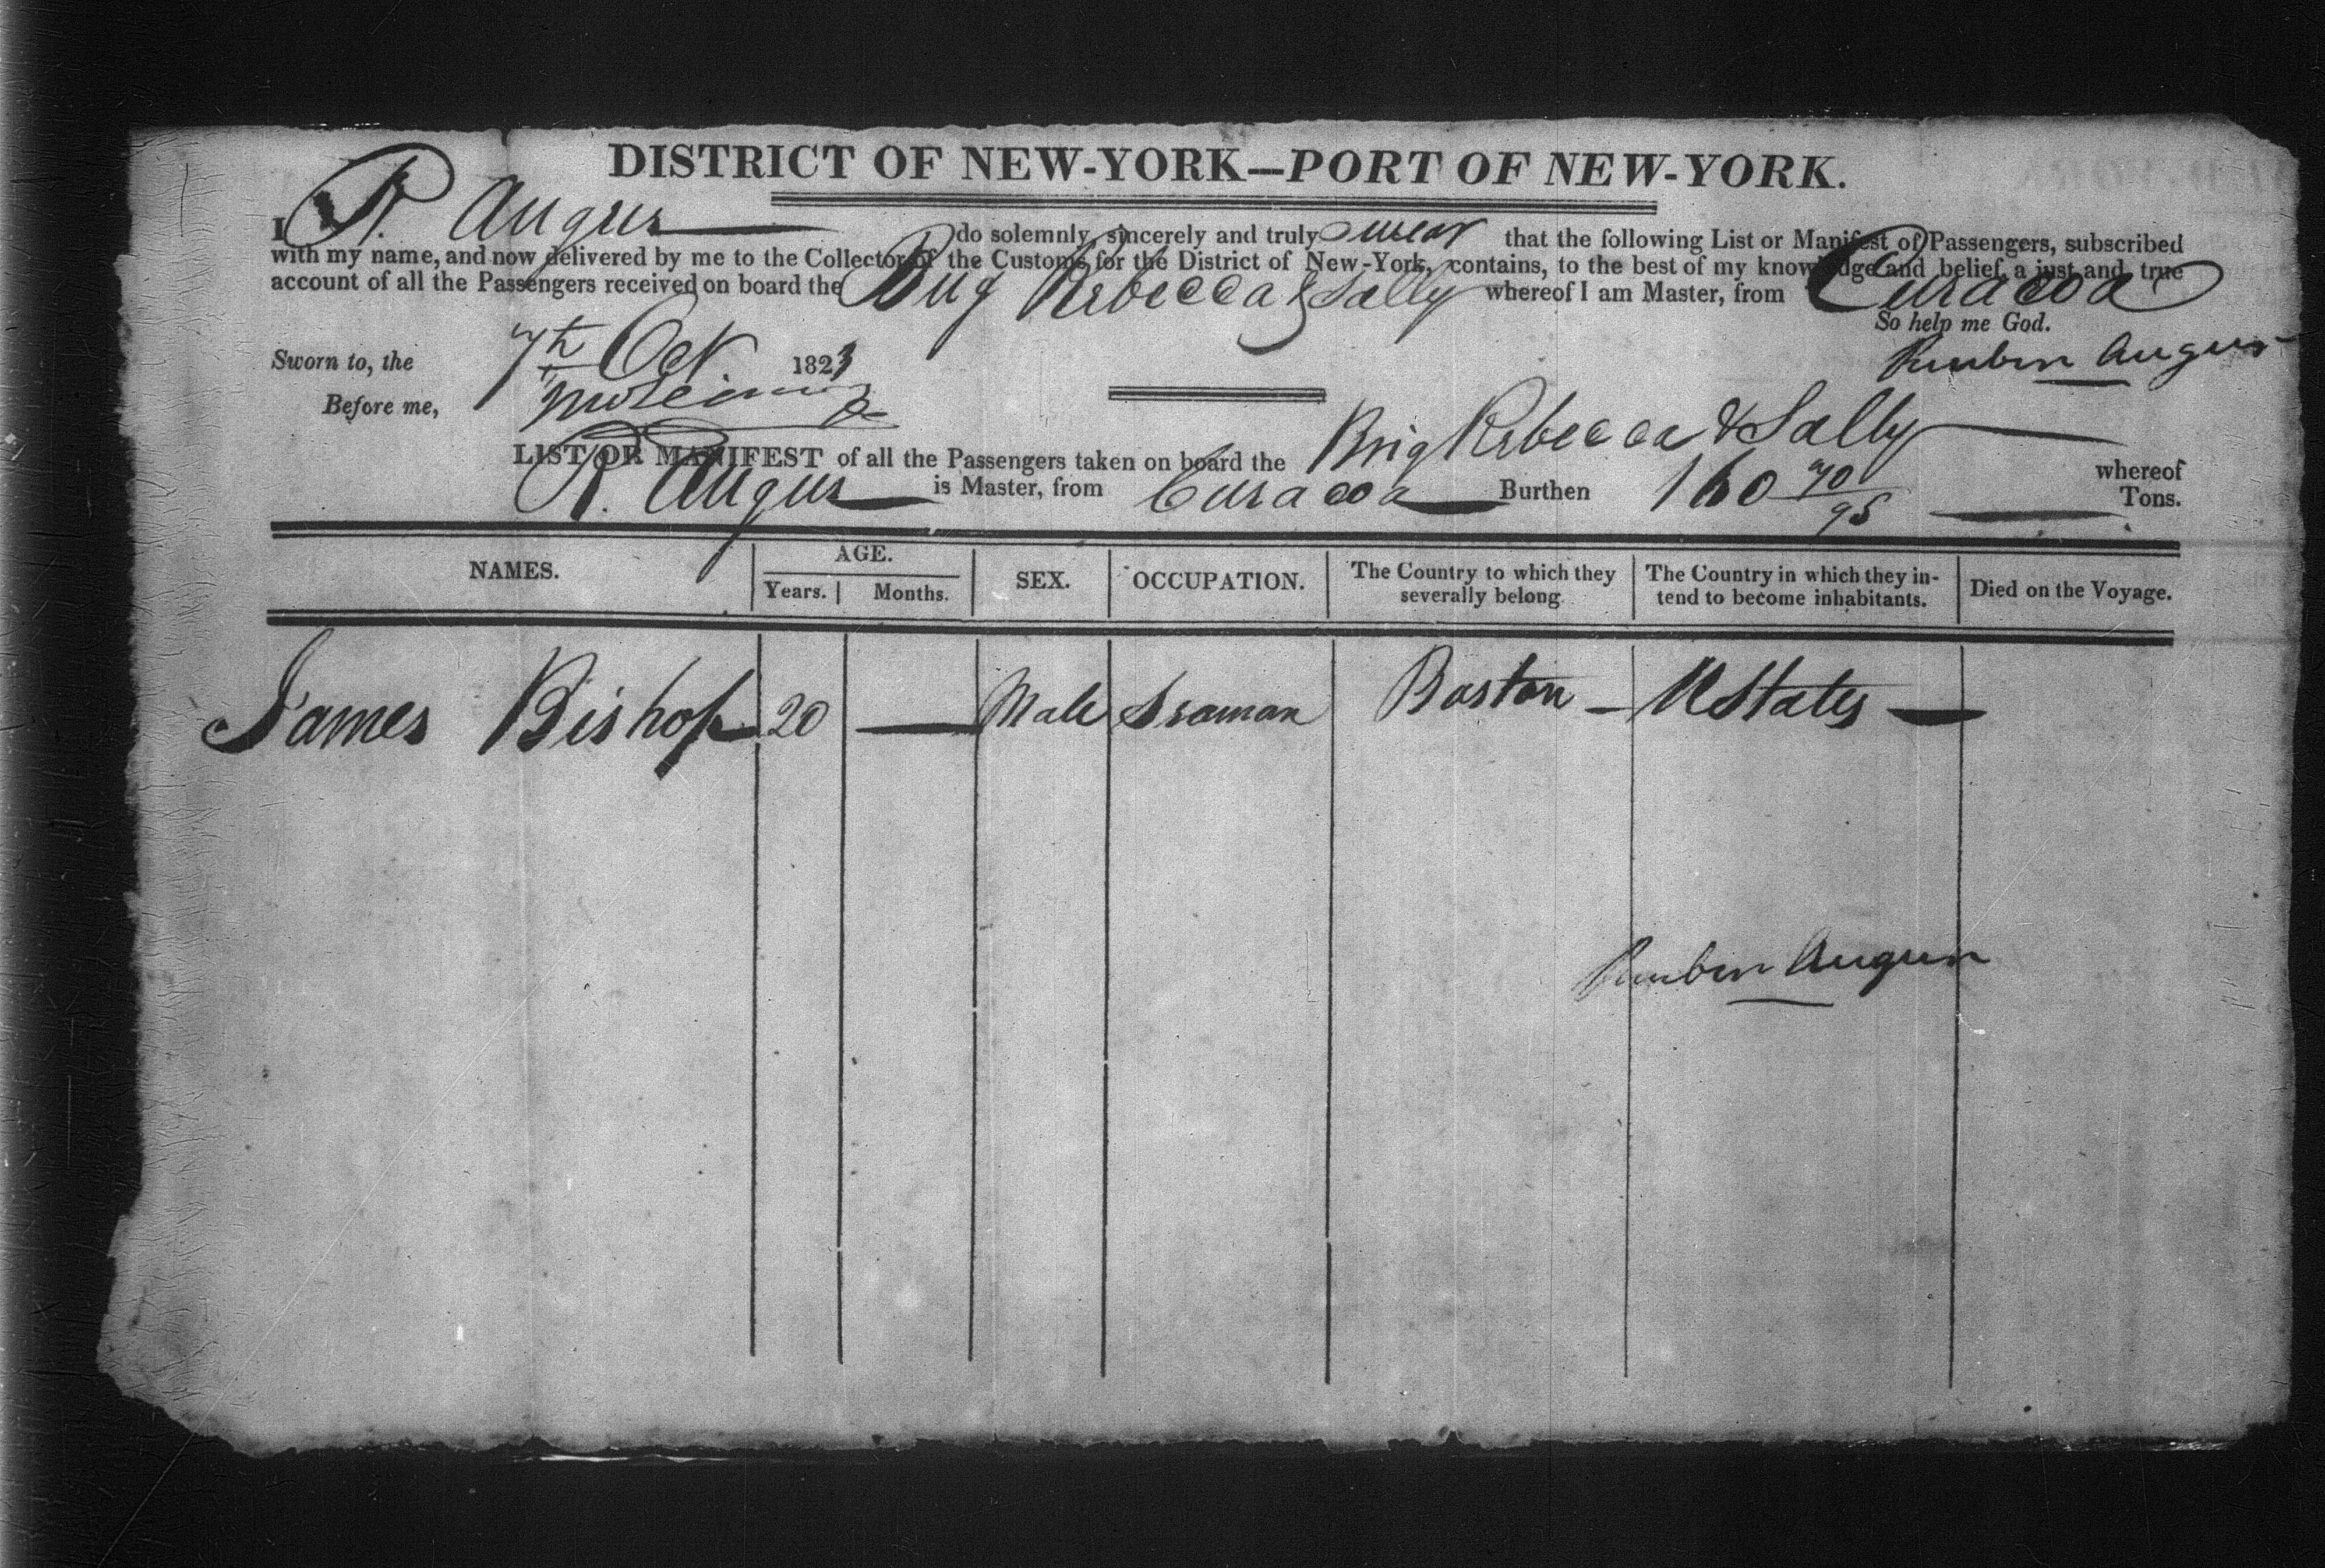 DISTRICT OF NEW-YORK—PORT OF NEW-YORK.
I R. Angus do solemnly, sincerely and truly swear that the following List or Manifest of Passengers, subscribed
with my name, and now delivered by me to the Collector of the Customs for the District of New-York, contains, to the best of my knowledge and belief, a just and true
account of all the Passengers received on board the Brig Rebecca & Sally whereof I am Master, from Curacoa
So help me God.
Sworn to, the 7th Oct 1823
Reuben Angus
Before me,
LIST OR MANIFEST of all the Passengers taken on board the Brig Rebecca & Sally whereof
R. Angus is Master, from Curacoa Burthen 160 70/95 Tons.
NAMES. AGE. SEX. OCCUPATION. The Country to which they severally belong. The Country in which they intend to become inhabitants. Died on the Voyage.
Years. Months.
James Bishop 20 — Male Seaman Boston — U States —
Reuben Angus